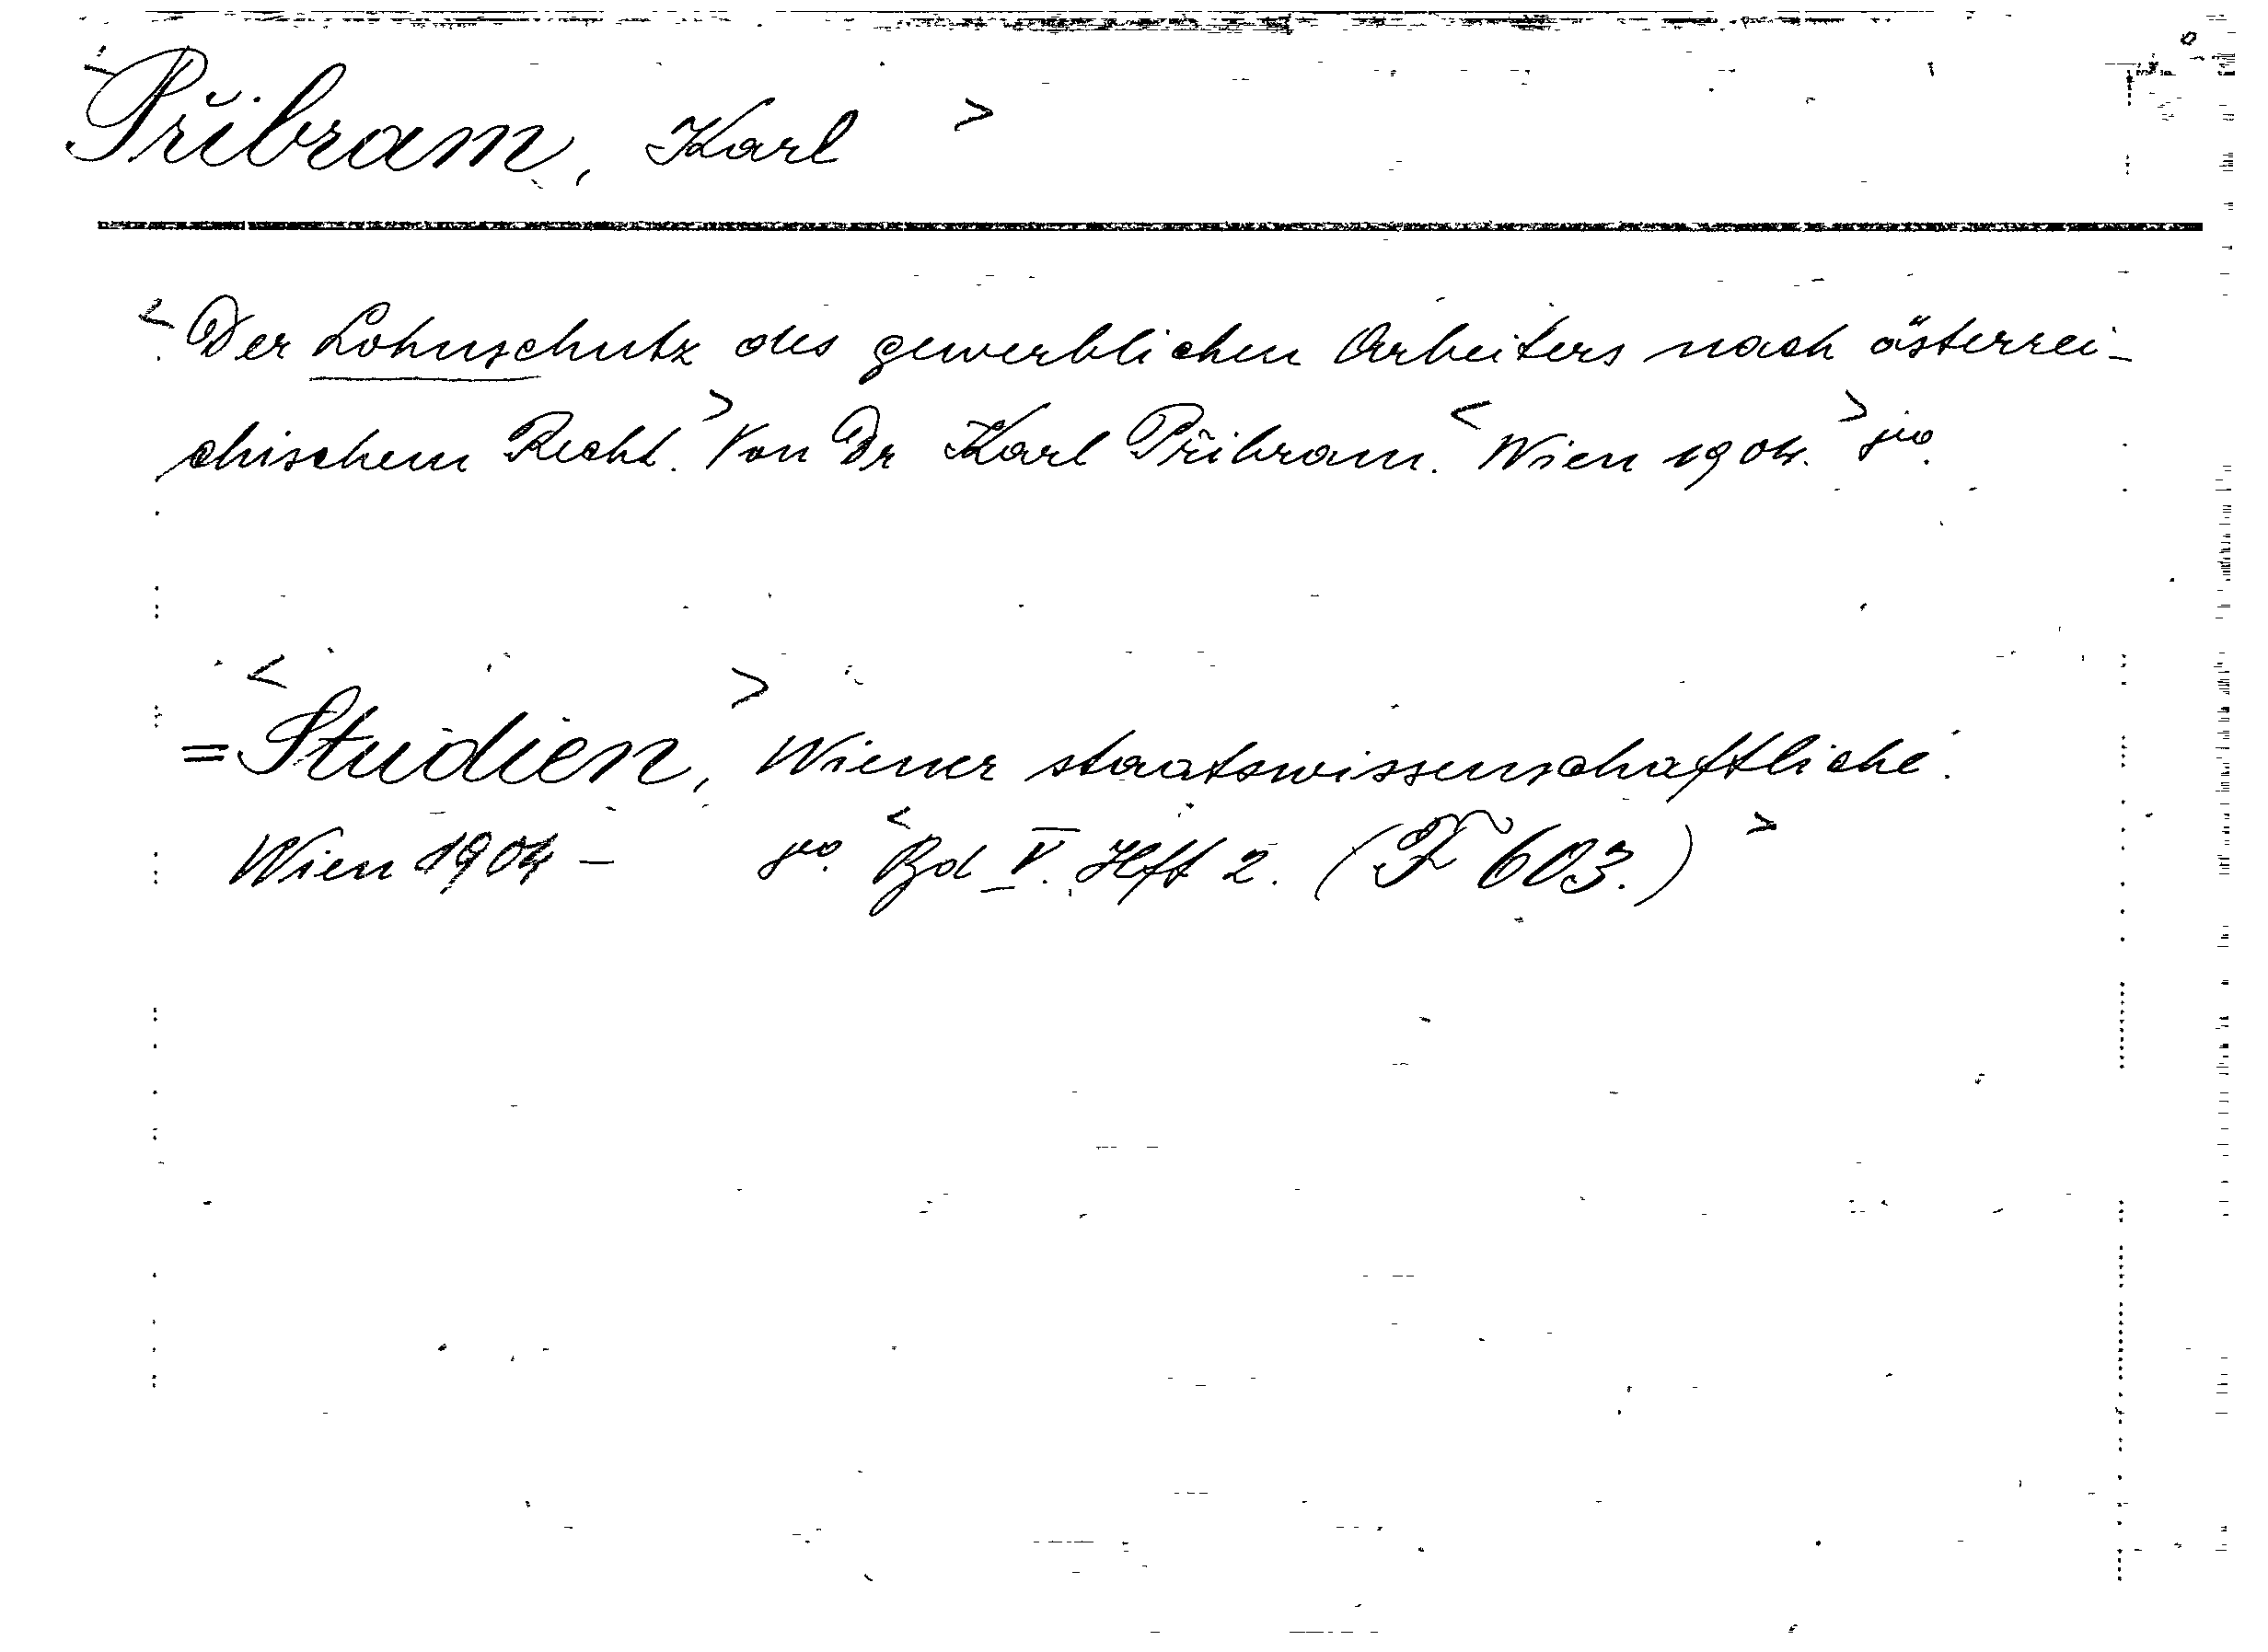 <Přibram, Karl >
<Der Lohnschutz des gewerblichen Arbeiters nach österrei-
chischem Recht.> Von Dr Karl Přibram. <Wien 1904.> 8vo.
=<Studien,> Wiener staatswissenschaftliche.
Wien 1904 - 8vo. <Bd V. Hft 2. (F 603.)>